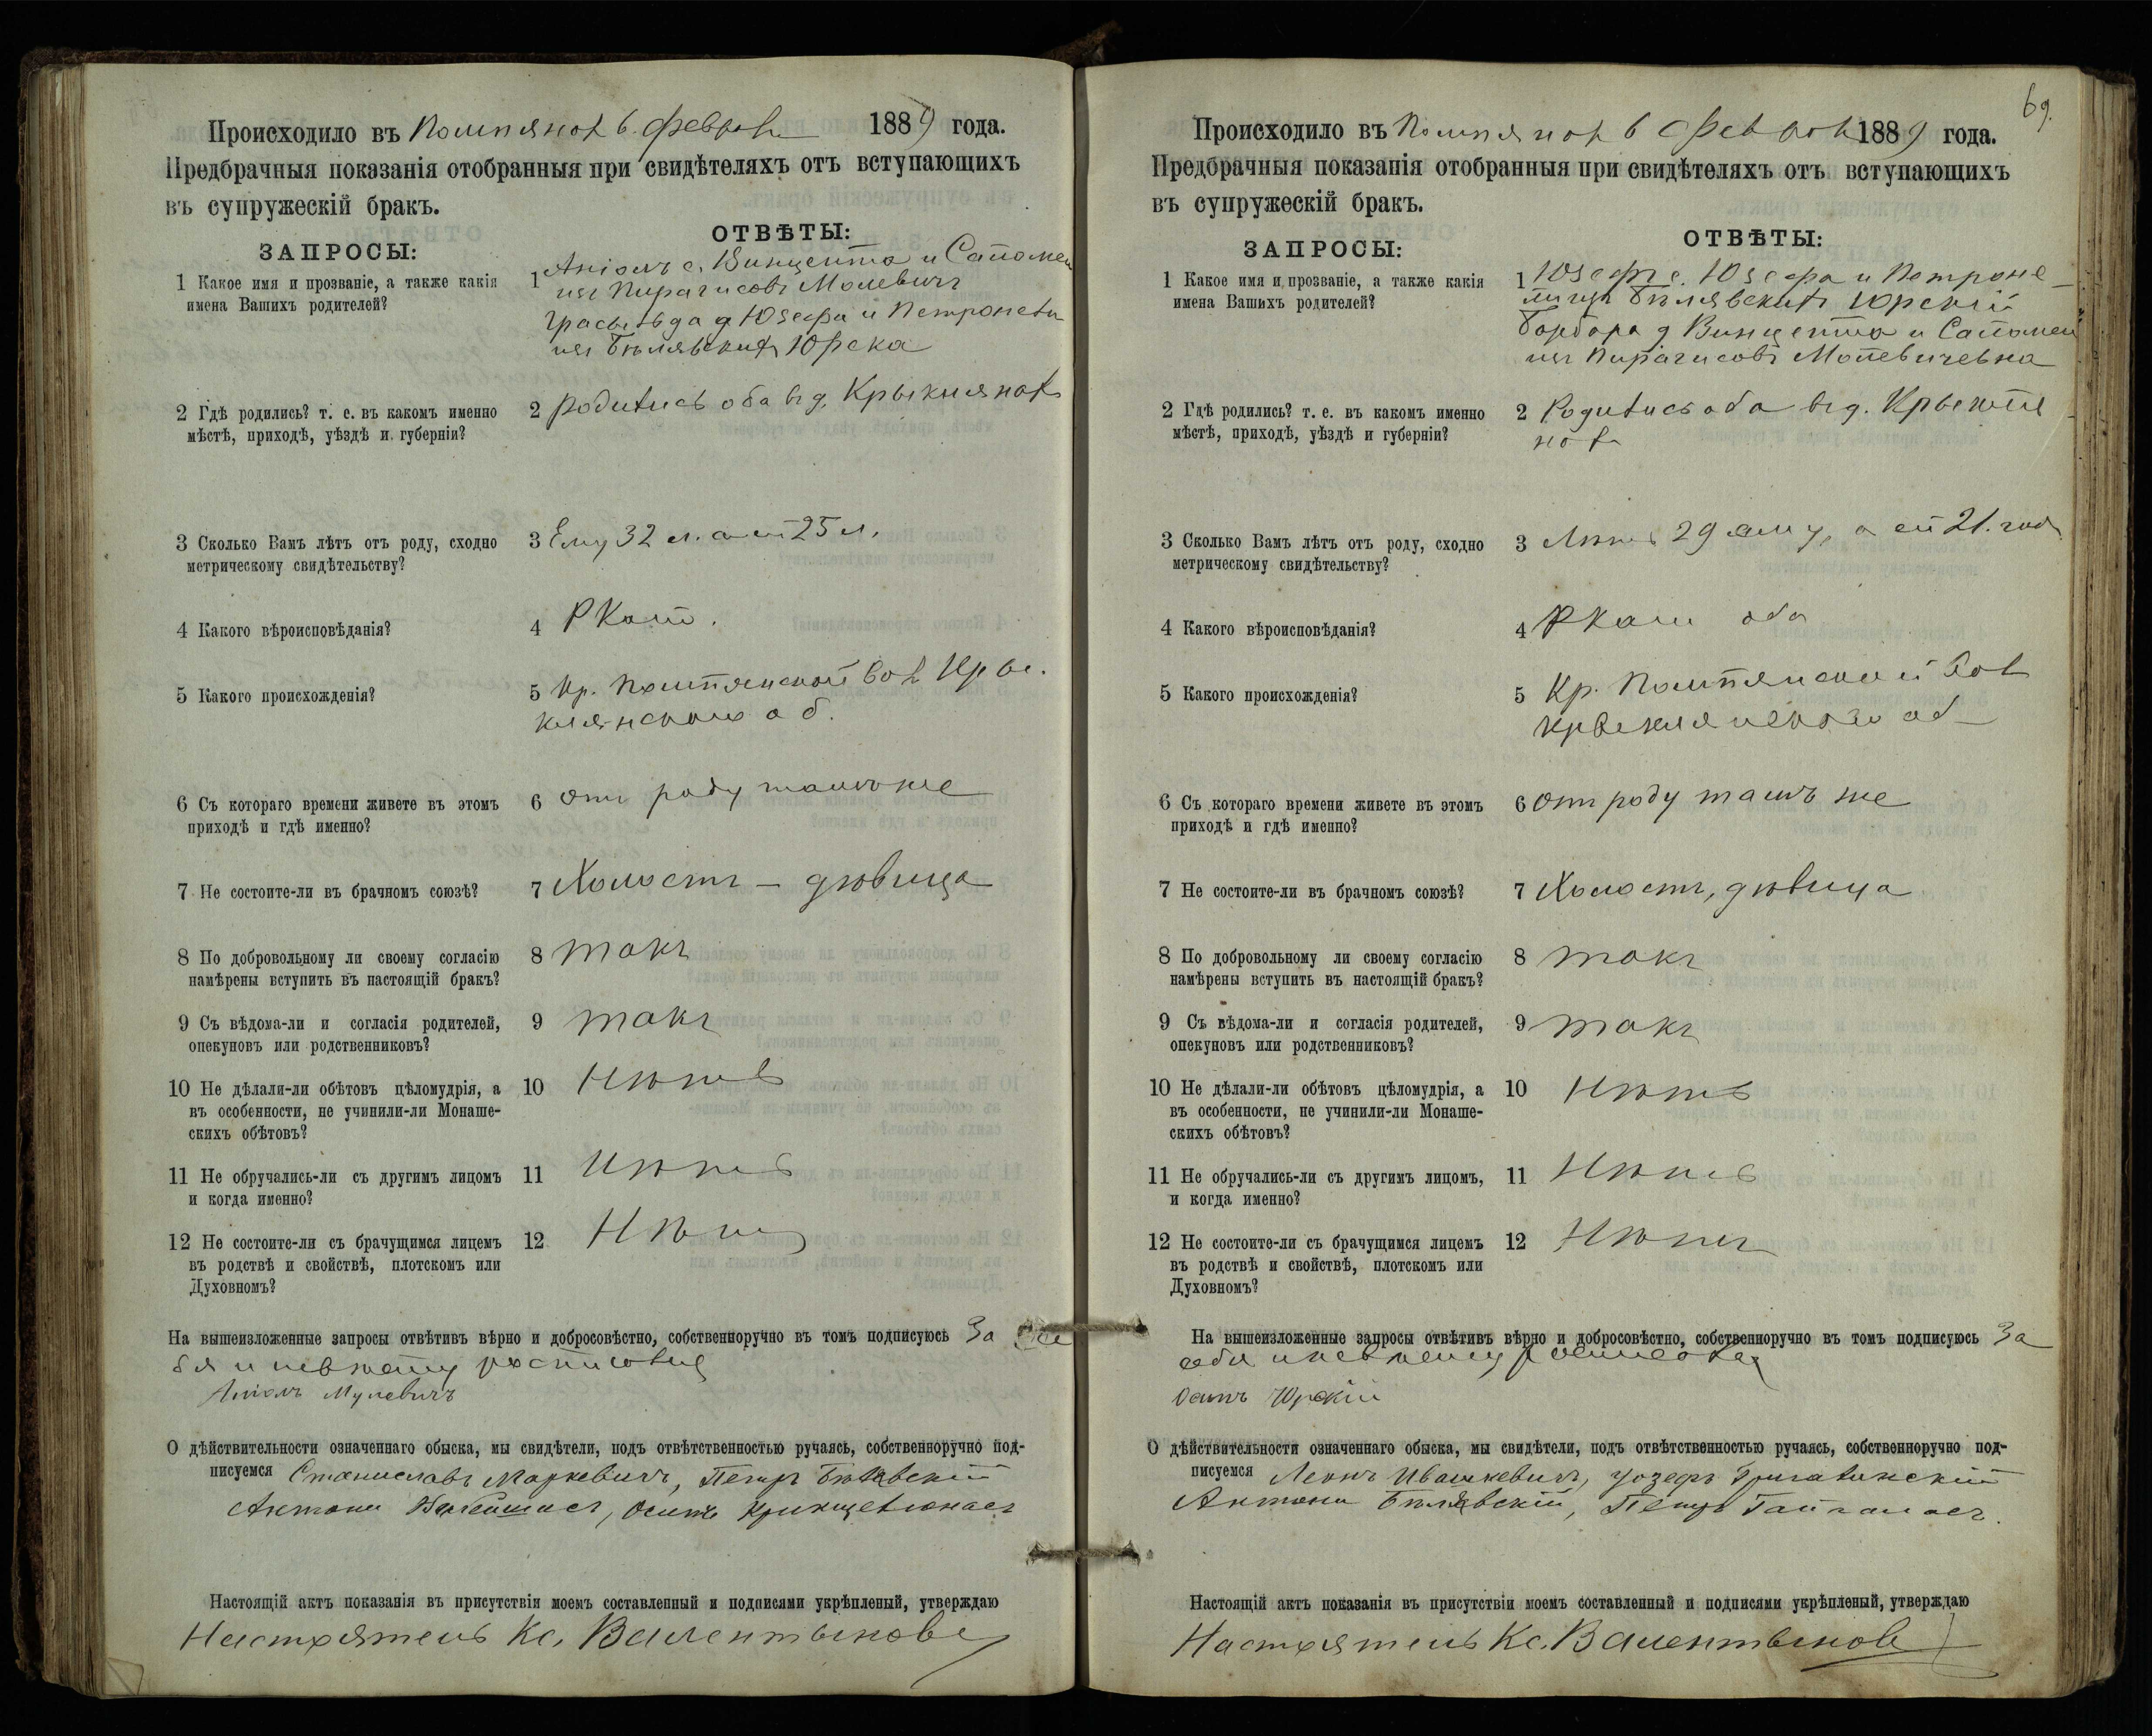 Происходило въ Помпянах 6. Феврал 1889 года.
Предбрачныя показанія отобранныя при свидѣтеляхъ отъ вступающихъ
въ супружескій бракъ.
ЗАПРОСЫ:
ОТВѢТЫ:
1 Какое имя и прозваніе, а также какія
имена Вашихъ родителей?
1 с. Винцента и
Молевичъ
д Юзефа и
Бѣлявских Юрска
2 Гдѣ родились? т. е. въ какомъ именно
мѣстѣ, приходѣ, уѣздѣ и губерніи?
2 родились оба въ д.
3 Сколько Вамъ лѣтъ отъ роду, сходно
метрическому свидѣтельству?
3 Ему 32 л. а ей 25 л.
4 Какого вѣроисповѣданія?
4 РКат.
5 Какого происхожденія?
5 Кр. Помпянской Вол
об.
6 Съ котораго времени живете въ этомъ
приходѣ и гдѣ именно?
6 отъ роду тамъ же
7 Не состоите-ли въ брачномъ союзѣ?
7 Холостъ – дѣвица
8 По добровольному ли своему согласію
намѣрены вступить въ настоящій бракъ?
8 такъ
9 Съ вѣдома-ли и согласія родителей,
опекуновъ или родственниковъ?
9 такъ
10 Не дѣлали-ли обѣтовъ цѣломудрія, а
въ особенности, не учинили-ли Монаше-
скихъ обѣтовъ?
10 Нѣтъ
11 Не обручались-ли съ другимъ лицомъ
и когда именно?
11 Нѣтъ
12 Не состоите-ли съ брачущимся лицемъ
въ родствѣ и свойствѣ, плотскомъ или
Духовномъ?
12 Нѣтъ
На вышеизложенные запросы отвѣтивъ вѣрно и добросовѣстно, собственноручно въ томъ подписуюсь За се
бя и невѣсту
Мулевичъ
О дѣйствительности означеннаго обыска, мы свидѣтели, подъ отвѣтственностью ручаясь, собственноручно под-
писуемся Станиславъ Маркевичъ, Петръ
Антони Осипъ
Настоящій актъ показанія въ присутствіи моемъ составленный и подписями укрѣпленый, утверждаю
Настоятель Кс. Валентынович
69.
Происходило въ Помпянах 6 Феврал 1889 года.
Предбрачныя показанія отобранныя при свидѣтеляхъ отъ вступающихъ
въ супружескій бракъ.
ЗАПРОСЫ:
ОТВѢТЫ:
1 Какое имя и прозваніе, а также какія
имена Вашихъ родителей?
1 Юзефъ с. Юзефа и Петроне-
Бѣлявских Юрскій
Барбара д Винцента и
Молевичевна
2 Гдѣ родились? т. е. въ какомъ именно
мѣстѣ, приходѣ, уѣздѣ и губерніи?
2 Родились оба въ д.
3 Сколько Вамъ лѣтъ отъ роду, сходно
метрическому свидѣтельству?
3 29 ему, а ей 21. год
4 Какого вѣроисповѣданія?
4 РКат оба
5 Какого происхожденія?
5 Кр. Помпянской Вол
об
6 Съ котораго времени живете въ этомъ
приходѣ и гдѣ именно?
6 отъ роду тамъ же
7 Не состоите-ли въ брачномъ союзѣ?
7 Холостъ, дѣвица
8 По добровольному ли своему согласію
намѣрены вступить въ настоящій бракъ?
8 такъ
9 Съ вѣдома-ли и согласія родителей,
опекуновъ или родственниковъ?
9 такъ
10 Не дѣлали-ли обѣтовъ цѣломудрія, а
въ особенности, не учинили-ли Монаше-
скихъ обѣтовъ?
10 Нѣтъ
11 Не обручались-ли съ другимъ лицомъ,
и когда именно?
11 Нѣтъ
12 Не состоите-ли съ брачущимся лицемъ
въ родствѣ и свойствѣ, плотскомъ или
Духовномъ?
12 Нѣтъ
На вышеизложенные запросы отвѣтивъ вѣрно и добросовѣстно, собственноручно въ томъ подписуюсь За
себя и невѣсту
Осипъ Юрскій
О дѣйствительности означеннаго обыска, мы свидѣтели, подъ отвѣтственностью ручаясь, собственноручно под-
писуемся Леонъ Ивашкевичъ,
Антони Бѣлявскій, Петръ
Настоящій актъ показанія въ присутствіи моемъ составленный и подписями укрѣпленый, утверждаю
Настоятель Кс. Валентынович